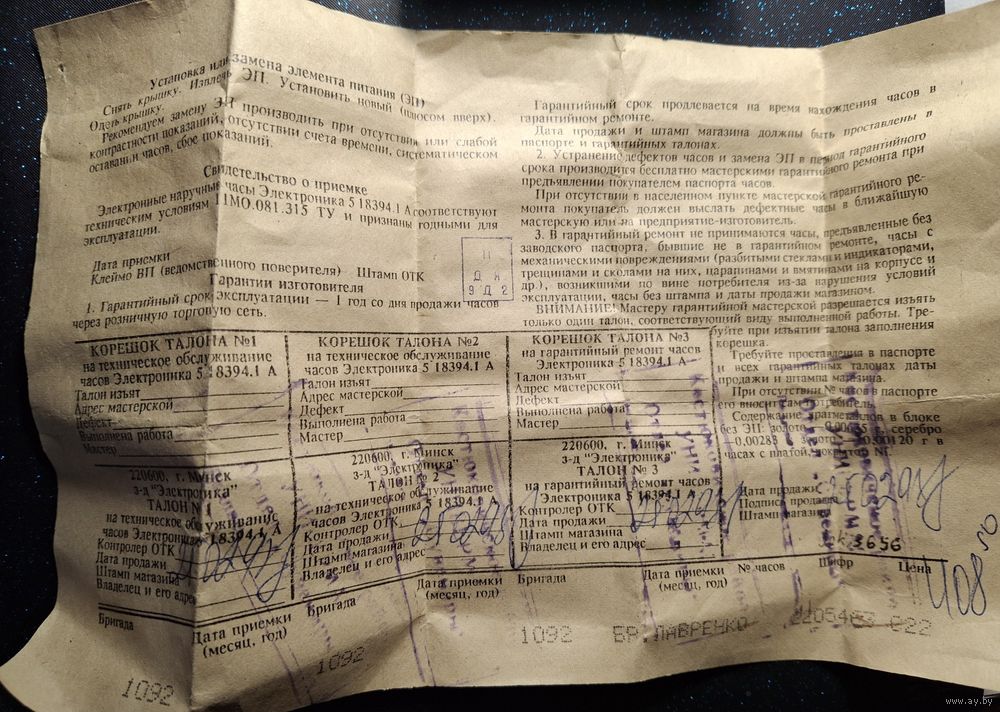 Установка или замена элемента питания (ЭП)
Снять крышку. Извлечь ЭП. Установить новый (плюсом вверх).
Одеть крышку.
Рекомендуем замену ЭП производить при отсутствии или слабой
контрастности показаний, отсутствии счета времени, систематическом
оставании часов, сбое показаний.
Свидетельство о приемке
Электронные наручные часы Электроника 5 18394.1 А соответствуют
техническим условиям ЦМО.081.315 ТУ и признаны годными для
эксплуатации.
Дата приемки
Клеймо ВП (ведомственного поверителя) Штамп ОТК
Гарантии изготовителя
1. Гарантийный срок эксплуатации — 1 год со дня продажи часов
через розничную торговую сеть.
Гарантийный срок продлевается на время нахождения часов в
гарантийном ремонте.
Дата продажи и штамп магазина должны быть проставлены в
паспорте и гарантийных талонах.
2. Устранение дефектов часов и замена ЭП в период гарантийного
срока производится бесплатно мастерскими гарантийного ремонта при
предъявлении покупателем паспорта часов.
При отсутствии в населенном пункте мастерской гарантийного ре-
монта покупатель должен выслать дефектные часы в ближайшую
мастерскую или на предприятие-изготовитель.
3. В гарантийный ремонт не принимаются часы, предъявленные без
заводского паспорта, бывшие не в гарантийном ремонте, часы с
механическими повреждениями (разбитыми стеклами и индикаторами,
трещинами и сколами на них, царапинами и вмятинами на корпусе и
др.), возникшими по вине потребителя из-за нарушения условий
эксплуатации, часы без штампа и даты продажи магазином.
ВНИМАНИЕ! Мастеру гарантийной мастерской разрешается изъять
только один талон, соответствующий виду выполненной работы. Тре-
буйте при изъятии талона заполнения
корешка.
Требуйте проставления в паспорте
и всех гарантийных талонах даты
продажи и штампа магазина.
При отсутствии № часов в паспорте
его вносит сам потребитель.
Содержание драгметаллов в блоке
без ЭП: золото
серебро
часах с платой, покрытой
Дата продажи
Подпись продавца
Штамп магазина
3656
КОРЕШОК ТАЛОНА №1
на техническое обслуживание
часов Электроника 5 18394.1 А
Талон изъят
Адрес мастерской
Дефект
Выполнена работа
Мастер
220600, г. Минск
з-д "Электроника"
ТАЛОН № 1
на техническое обслуживание
часов Электроника 5 18394.1 А
Контролер ОТК
Дата продажи
Штамп магазина
Владелец и его адрес
КОРЕШОК ТАЛОНА №2
на техническое обслуживание
часов Электроника 5 18394.1 А
Талон изъят
Адрес мастерской
Дефект
Выполнена работа
Мастер
220600, г. Минск
з-д "Электроника"
ТАЛОН № 2
на техническое обслуживание
часов Электроника 5 18394.1 А
Контролер ОТК
Дата продажи
Штамп магазина
Владелец и его адрес
КОРЕШОК ТАЛОНА №3
на гарантийный ремонт часов
Электроника 5 18394.1 А
Талон изъят
Адрес мастерской
Дефект
Выполнена работа
Мастер
220600, г. Минск
з-д "Электроника"
ТАЛОН № 3
на гарантийный ремонт часов
Электроника 5 18394.1 А
Контролер ОТК
Дата продажи
Штамп магазина
Владелец и его адрес
Бригада
Дата приемки
(месяц, год)
Бригада
Дата приемки
(месяц, год)
Бригада
Дата приемки
(месяц, год)
№ часов
Шифр
Цена
408 50
1092
1092
1092
БР.ЛАВРЕНКО
822
www.ay.by